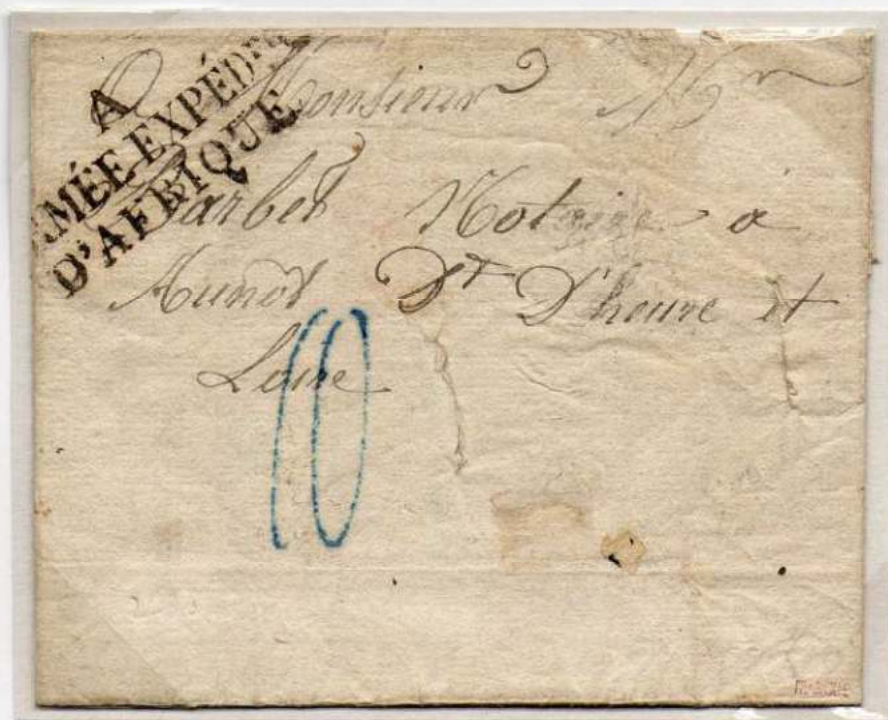 A
RMÉE EXPÉD
D'AFRIQUE
Monsieur
Barbet Notaire à
Dt D'heure et
Loire
10